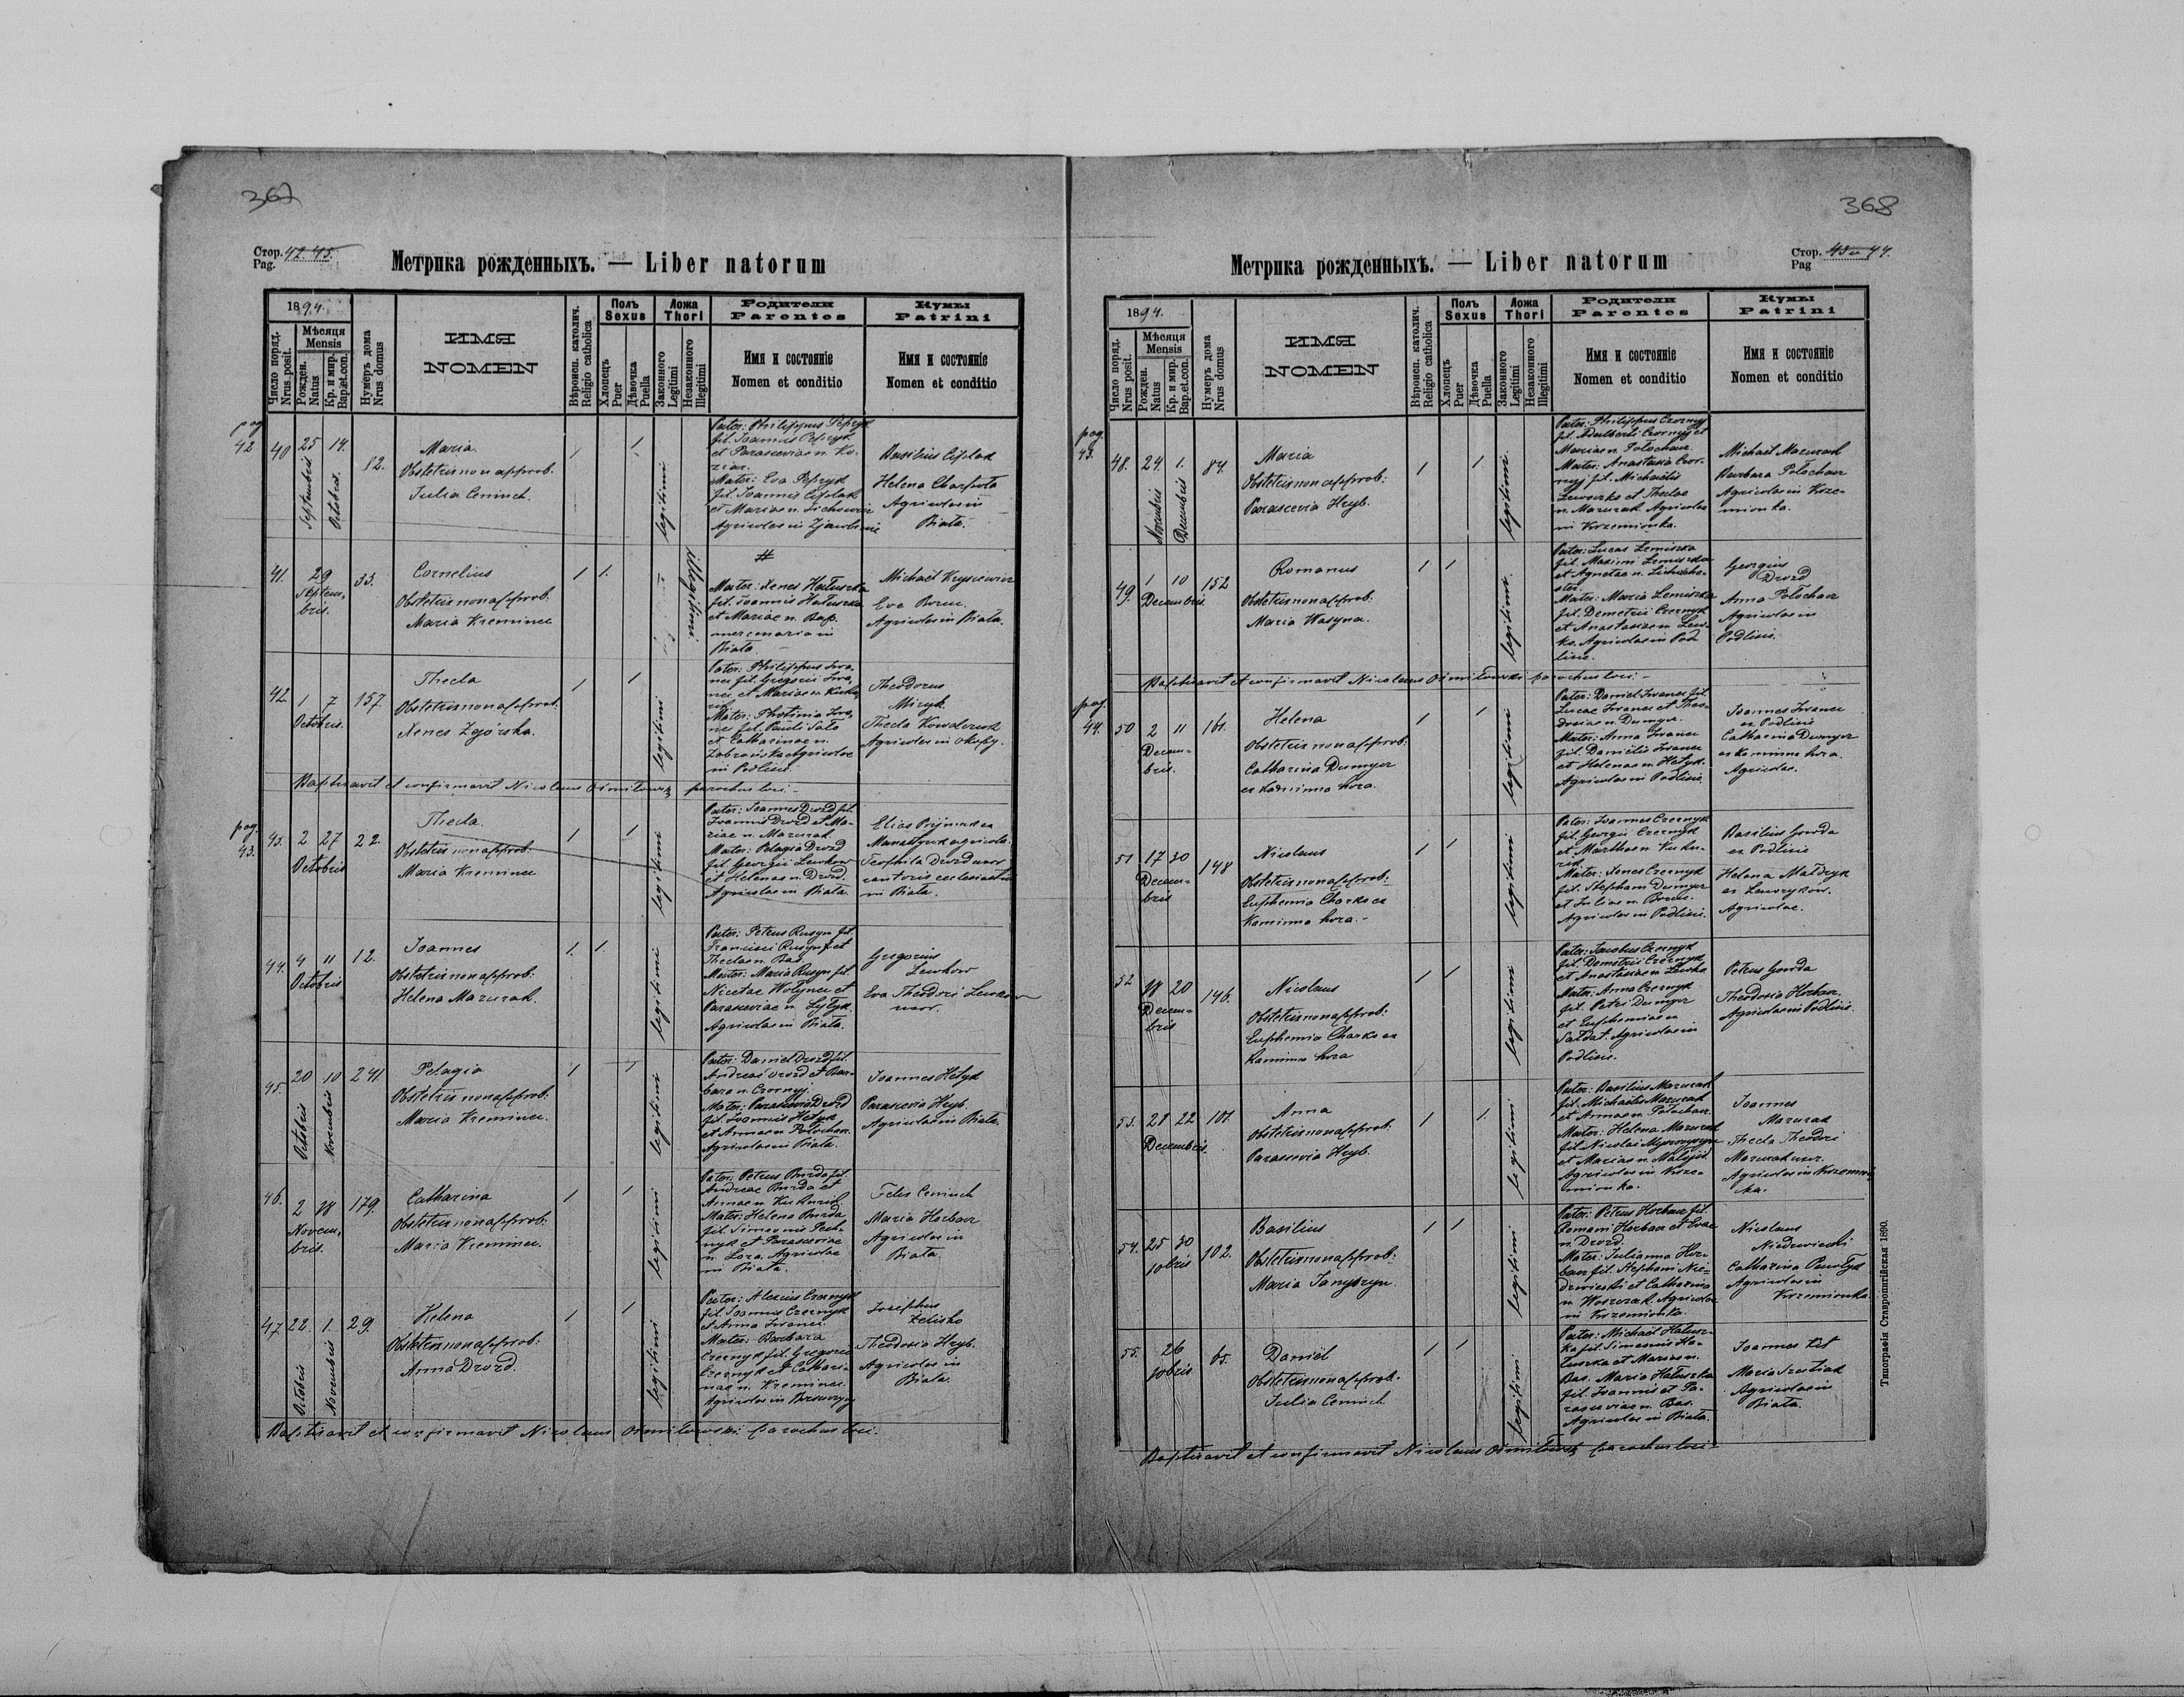 367
Стор. 42. 43.
Pag.
Метрика рожденныхъ. — Liber natorum
1894.
Число поряд.
Nrus posit.
Мѣсяця
Mensis
Рожден.
Natus
Кр. и мир.
Bap.et.con.
Нумеръ дома
Nrus domus
ИМЯ
NOMEN
Вѣроисп. католич.
Religio catholica
Полъ
Sexus
Хлопецъ
Puer
Дѣвочка
Puella
Ложа
Thori
Законного
Legitimi
Незаконного
Illegitimi
Родители
Parentes
Имя и состояніе
Nomen et conditio
Кумы
Patrini
Имя и состояніе
Nomen et conditio
pag
42
40
25 14.
Septembris
Octobris
82.
Maria
Obstetrix non approb.
Julia Ceninch.
1
1
legitimi
Pater: Philippus Pepryk
fil. Joannis Pepryk
et Parasceviae n. Ko-
ziar.
Mater: Eva Pepryk
fil. Joannis Ciplak
et Mariae n.
Agricolae in
Basilius Ciplak
Helena Charpota
Agricolae in
Biała.
41.
29
Septem,
bris.
33.
Cornelius
Obstetrix non approb.
Maria Kreminec
1
1.
illegitimi
#
Mater: Xenes Hałuszka
fil. Joannis Hałuszka
et Mariae n. Bap.
mercenaria in
Biała.
Michael Krysiewicz
Eva Borne.
Agricolae in Biała.
42
1 7
Octobris.
157
Thecla
Obstetrix non approb.
Xenes Zgórska.
1
1
legitimi
Pater: Philippus Iwa,
nec fil. Gregorii Iwa,
nec et Mariae n. Kuchar
Mater: Photinia Iwa,
nec fil. Pauli Sało
et Catharinae n.
Zabrońska Agricolae
in Podlisie.
Theodorus
Mizyk.
Thecla Kowalczuk
Agricolae in Okopy.
Baptisavit et confirmavit Nicolaus Osmiłowski parochus loci. —
pag.
43.
43.
2 27
Octobris
22.
Thecla.
Obstetrix non approb.
Maria Kreminec
1
1
legitimi
Pater: Joannes Drozd fil.
Joannis Drozd et Ma-
riae n. Mazurak.
Mater: Pelagia Drozd
fil. Georgii Lewkow
et Helenae n. Drozd.
Agricolae in Biała.
Elias Prijmak ex
Monastyrek agricola.
Teophila Drozd uxor
cantoris ecclesiastici
in Biała.
44.
4 11
Octobris
12.
Joannes
Obstetrix non approb.
Helena Mazurak.
1.
1.
legitimi
Pater: Petrus Rusyn fil.
Francisci Rusyn et
Theclae n. Bas.
Mater: Maria Rusyn fil.
Nicetae Wołyniec et
Parasceviae n. Łytyk.
Agricolae in Biała.
Gregorius
Lewkow
Eva Theodori Lewkow
uxor.
45.
20 10
Octobris
Novembris
241.
Pelagia
Obstetrix non approb.
Maria Kreminec.
1
1
legitimi
Pater: Daniel Drozd fil.
Andreae Drozd et Bar-
bara n. Czornyj.
Mater: Parascevia Drozd
fil. Joannis Hetyk
et Annae n. Połochan.
Agricolae in Biała.
Joannes Hetyk
Parascevia Hryb.
Agricolae in Biała.
46.
2 18
Novem,
bris.
179.
Catharina
Obstetrix non approb.
Maria Kreminec.
1
1
legitimi
Pater: Petrus Burda fil.
Andreae Burda et
Annae n.
Mater: Helena Burda
fil. Simeonis
et Parasceviae
n. Agricolae
in Biała.
Felis Ceninch
Maria Horbacz
Agricolae in
Biała.
47.
22. 1.
Octobris
Novembris
29.
Helena
Obstetrix non approb.
Anna Drozd.
1
1
legitimi
Pater: Alexius Czernyk
fil. Joannis Czernyk
et Anna Iwanec.
Mater: Barbara
Czernyk fil. Gregorii
Czernyk et Cathari-
nae n. Kreminec.
Agricolae in
Josephus
Zelisko
Theodosia Hryb.
Agricolae in
Biała.
Baptisavit et confirmavit Nicolaus Osmiłowski parochus loci.
368
Стор. 43 44.
Pag
Метрика рожденныхъ. — Liber natorum
1894.
Число поряд.
Nrus posit.
Мѣсяця
Mensis
Рожден.
Natus
Кр. и мир.
Bap.et.con.
Нумеръ дома
Nrus domus
ИМЯ
NOMEN
Вѣроисп. католич.
Religio catholica
Полъ
Sexus
Хлопецъ
Puer
Дѣвочка
Puella
Ложа
Thori
Законного
Legitimi
Незаконного
Illegitimi
Родители
Parentes
Имя и состояніе
Nomen et conditio
Кумы
Patrini
Имя и состояніе
Nomen et conditio
pag.
43.
48.
24. 1.
Novembris
Decembris
84.
Maria
Obstetrix non approb.
Parascevia Hryb.
1
1
legitimi.
Pater: Philippus Czornyj
fil. Adalberti Czornyj et
Mariae n. Połochan.
Mater: Anastasia Czor-
nyj fil. Michaelis
et Theclae
n. Mazurak. Agricolae
in Krzemionka.
Michael Mazurak
Barbara Połochan
Agricolae in Krze-
mionka.
49.
1 10
Decembris
152
Romanus
Obstetrix non approb.
Maria Wasyna.
1
1
legitimi.
Pater: Lucas Lemiszka
fil. Maximi Lemiszka
et Agnetae n.
Mater: Maria Lemiszka
fil. Demetrii Czernyk
et Anastasiae n. Lew-
ko. Agricolae in Pod
lisie.
Georgius
Drozd
Anna Połochan
Agricolae in
Podlisie.
Baptisavit et confirmavit Nicolaus Osmiłowski parochus loci. —
pag.
44.
50
2 11
Decem-
bris.
161.
Helena
Obstetrix non approb.
Catharina Dumycz
ex Kaminna hora.
1
1
legitimi
Pater: Daniel Iwanec fil.
Lucae Iwanec et Theo-
dosiae n. Dumycz.
Mater: Anna Iwanec
fil. Danielis Iwanec
et Helenae n. Hetyk.
Agricolae in Podlisie.
Joannes Iwanec
ex Podlisie
Catharina Dumycz
ex Kaminna hora.
Agricolae.
51
17 30
Decem-
bris
148
Nicolaus
Obstetrix non approb.
Euphemia Charko ex
Kaminna hora. -
1
1
legitimi
Pater: Joannes Czernyk
fil. Georgii Czernyk
et Martha n.
Mater: Xenes Czernyk
fil. Stephani Dumycz
et Juliae n.
Agricolae in Podlisie.
Basilius Gowda
ex Podlisie
Helena Małdzyk
ex
Agricolae.
52
18 20
Decem-
bris
146.
Nicolaus
Obstetrix non approb.
Euphemia Charko ex
Kaminna hora
1
1
legitimi
Pater: Jacobus Czernyk
fil. Demetrii Czernyk
et Anastasiae n. Lewko
Mater: Anna Czernyk
fil. Petri Dumycz
et Euphemiae n.
Sałdat. Agricolae in
Podlisie.
Petrus Gowda
Theodosia Horbacz.
Agricolae in Podlisie.
53.
21 22
Decembris.
101.
Anna
Obstetrix non approb.
Parascevia Hryb.
1
1.
legitimi
Pater: Basilius Mazurak
fil. Michaelis Mazurak
et Annae n. Połochan.
Mater: Helena Mazurak
fil. Nicolai
et Mariae n.
Agricolae in Krze-
mionka.
Joannes
Mazurak
Thecla Theodori
Mazurak uxor.
Agricolae in Krzemion
ka.
54.
25 30
10bris
102.
Basilius
Obstetrix non approb.
Maria Janyszyn.
1
1
legitimi
Pater: Petrus Horbacz fil.
Romani Horbacz et Evae
n. Drozd.
Mater: Julianna Hor-
bacz fil. Stephani Nie-
dzwiecki et Catharina
n. Agricolae
in Krzemionka.
Nicolaus
Niedzwiecki
Catharina Pawłyk
Agricolae in
Krzemionka.
55.
26
10bris
65.
Daniel
Obstetrix non approb.
Julia Ceninch
1
1
legitimi
Pater: Michael Hałusz-
ka fil. Simeonis Ha-
łuszka et Mariae n.
Bas. Maria Hałuszka
fil. Joannis et Pa-
rasceviae n. Bas.
Agricolae in Biała.
Joannes Kit
Maria
Agricolae in
Biała.
Baptisavit et confirmavit Nicolaus Osmiłowski parochus loci. -
Типографія Ставропигійская 1890.